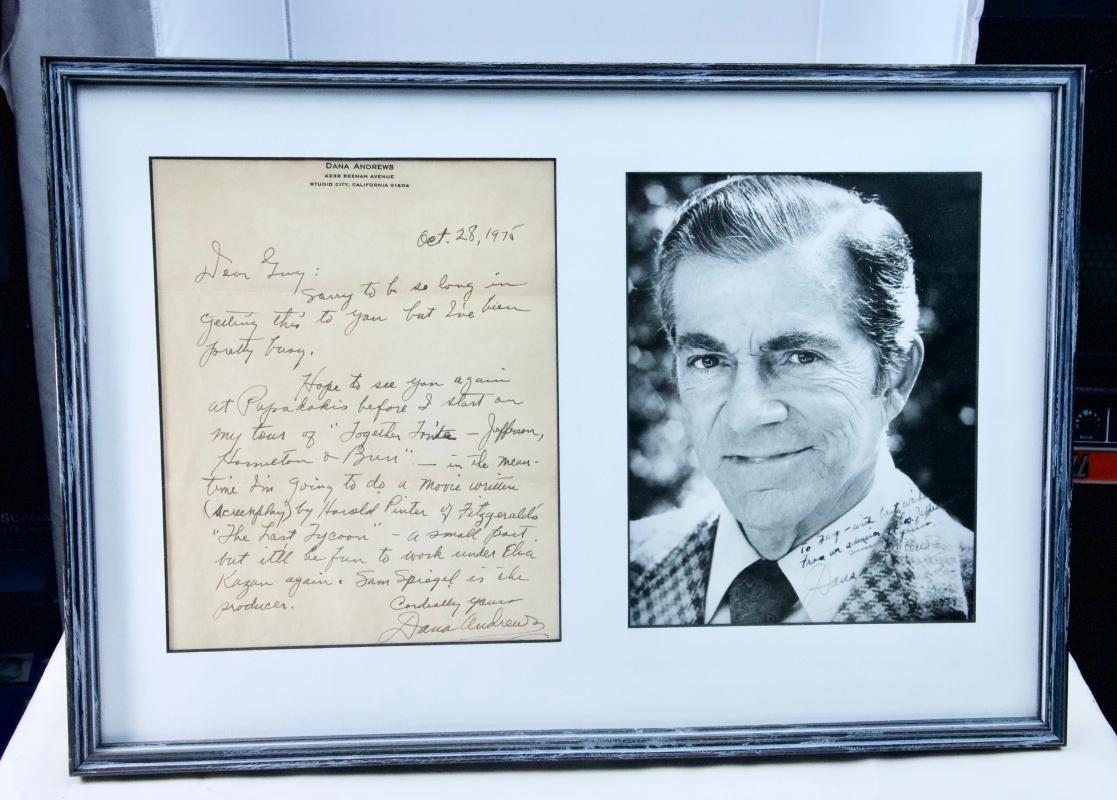 DANA ANDREWS
4238 BEEMAN AVENUE
STUDIO CITY, CALIFORNIA 91604
Oct. 28, 1975
Dear Guy:
Sorry to be so long in
getting this to you but I've been
pretty busy.
Hope to see you again
at Papadakis before I start on
my tour of "Together Tonite — Jefferson,
Hamilton & Burr" — in the mean-
time I'm going to do a movie written
(screenplay) by Harold Pinter of Fitzgerald's
"The Last Tycoon" — a small part
but it'll be fun to work under Elia
Kazan again. Sam Spiegel is the
producer.
Cordially yours
Dana Andrews
To Guy - with best wishes
from an
Dana Andrews
SCANN